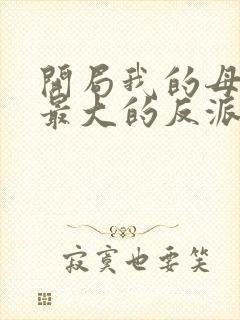 開局我的母
最大的反派
寂寞也要笑